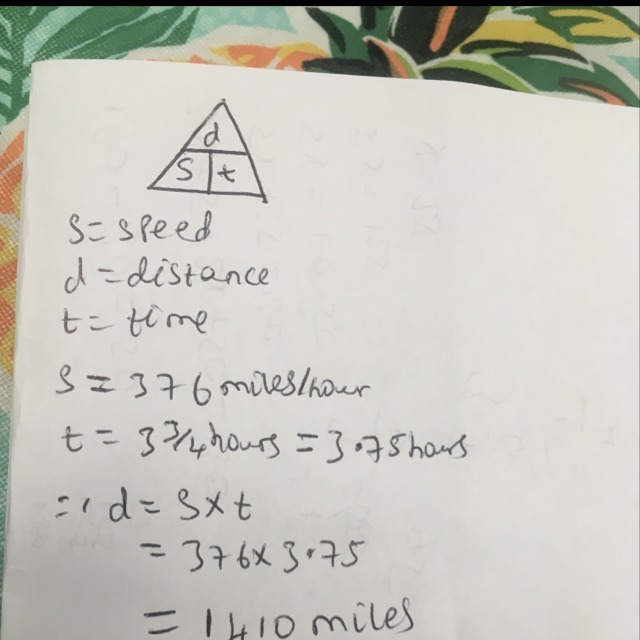 d
s t
s = speed
d = distance
t = time
s = 376 miles/hour
t = 3 3/4 hours = 3.75 hours
=, d = s x t
= 376 x 3.75
= 1410 miles